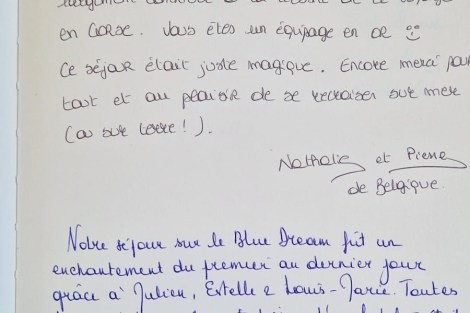 en Corse. Vous êtes un équipage en OR
Ce séjour était juste magique. Encore merci pour
tout et au plaisir de se recroiser sur mer
(ou sur terre !).
Nathalie et Pierre
de Belgique.
Notre séjour sur le Blue Dream fût un
enchantement du premier au dernier jour
grâce à Julien, Estelle & Louis-Marie. Toutes